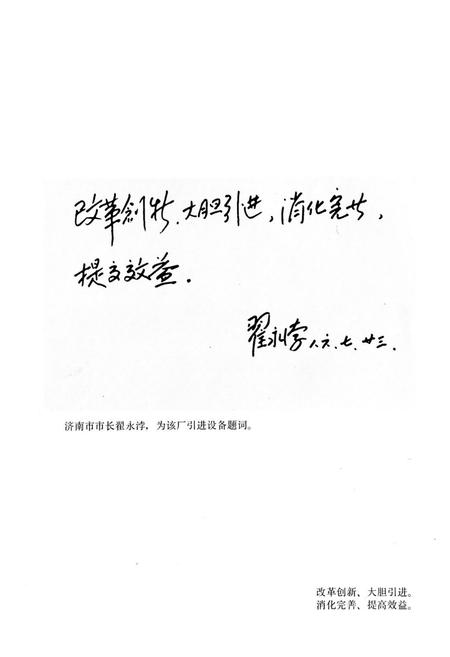 改革创新、大胆引进，消化完善，
提高效益。
翟永浡 八六.七.廿三.
济南市市长翟永浡，为该厂引进设备题词。
改革创新、大胆引进。
消化完善、提高效益。